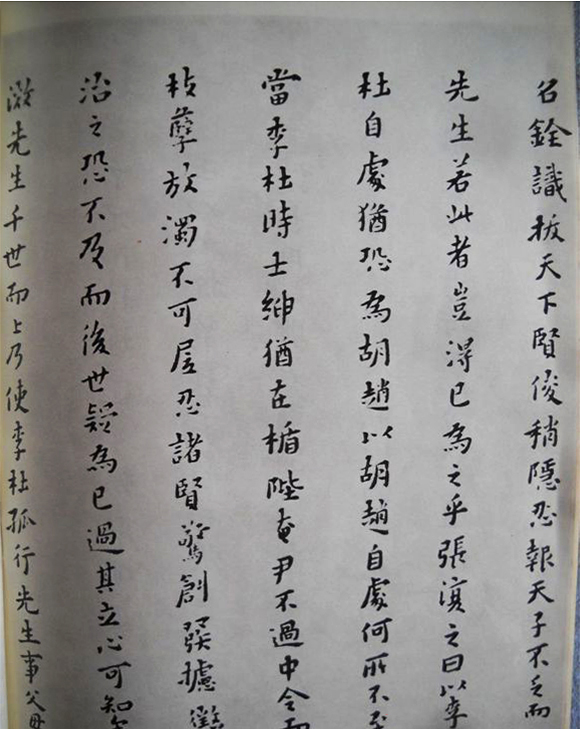 名銓識拔天下賢俊稍隱忍報天子不乏而
先生若此者豈得已為之乎張溥之曰以李
杜自處猶恐為胡趙以胡趙自處何所不至
當李杜時士紳猶在楯陛奄尹不過中令而
孽放濁不可居忍諸賢驚創
治之恐不及而後世疑為已過其立心可知
先生千世而上乃使李杜孤行先生事父母